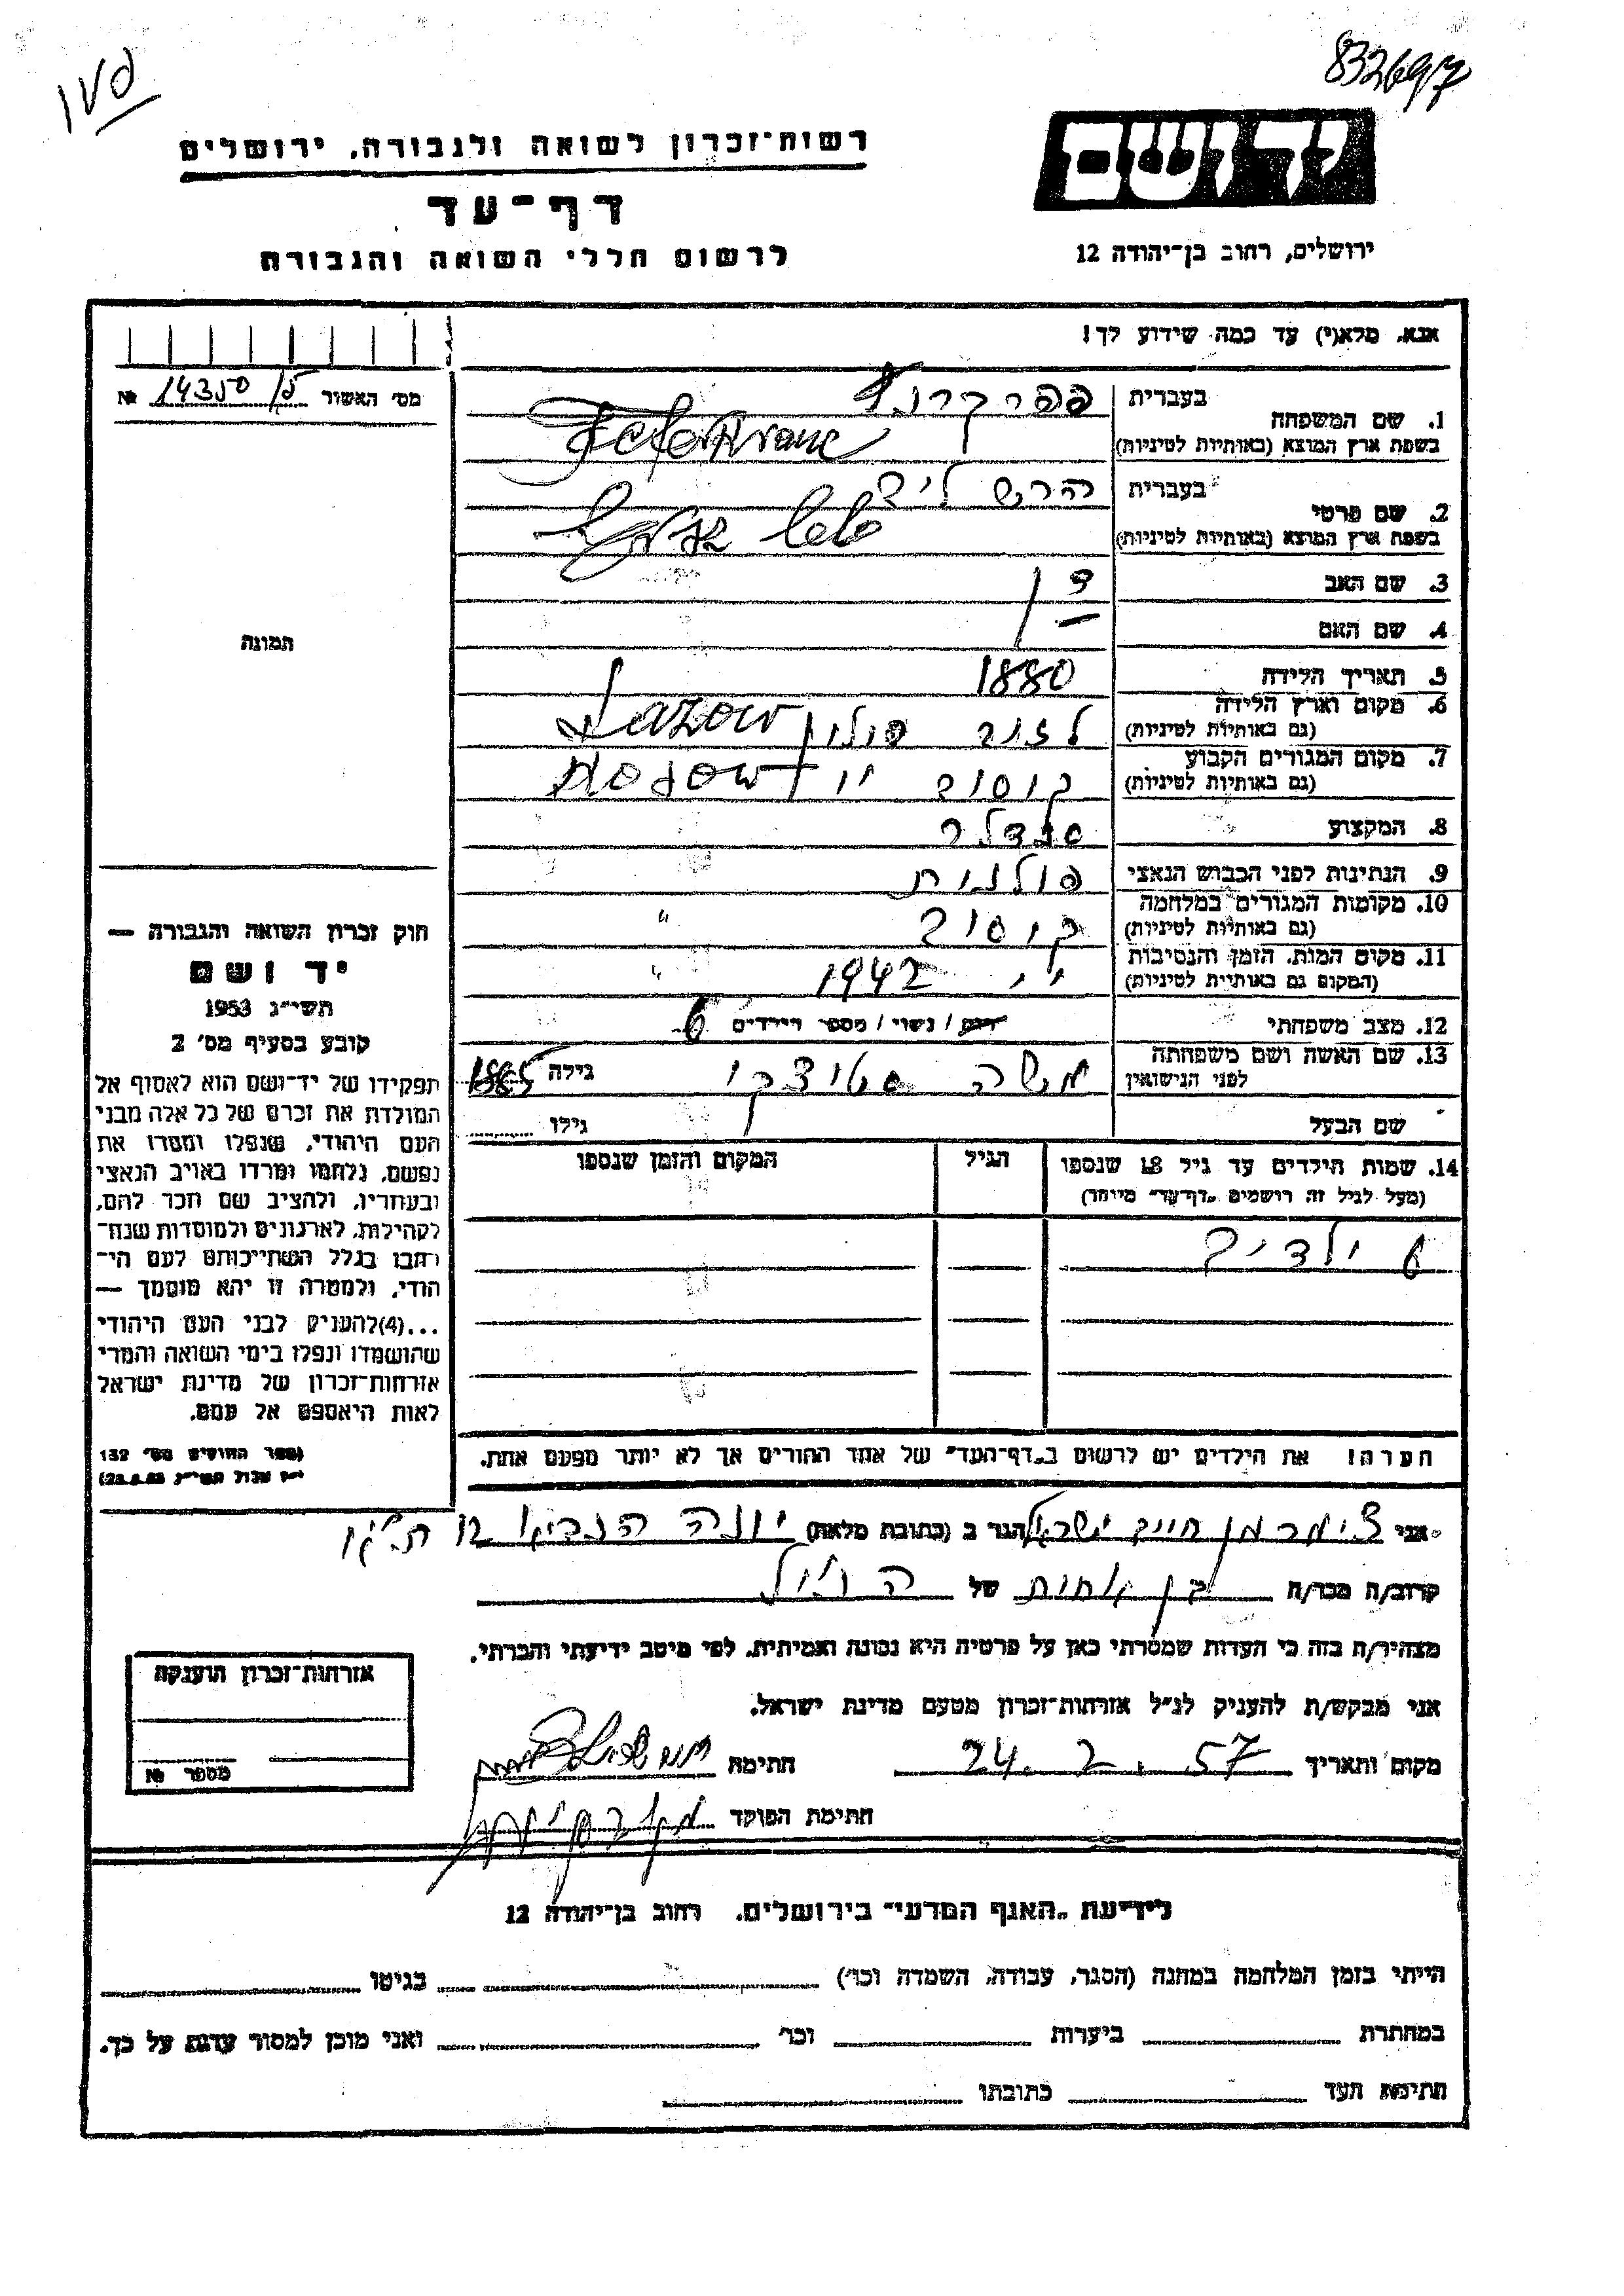 832697
יד ושם
רשות־זכרון לשואה ולגבורה, ירושלים
דף־עד
לרשום חללי השואה והגבורה
ירושלים, רחוב בן־יהודה 12
אנא, מלא(י) עד כמה שידוע לך!
מס׳ האשור 14350/5 №
1. שם המשפחה
בעברית
(בשפת ארץ המוצא (באותיות לטיניות
2. שם פרטי
בעברית הרש ליב
(בשפת ארץ המוצא (באותיות לטיניות
3. שם האב
4. שם האם —
תמונה
5. תאריך הלידה 1880
6. מקום וארץ הלידה
(גם באותיות לטיניות) לזוב פולין Lazow
7. מקום המגורים הקבוע
(גם באותיות לטיניות) קוסוב "
8. המקצוע סנדלר
9. הנתינות לפני הכבוש הנאצי פולנית
10. מקומות המגורים במלחמה
(גם באותיות לטיניות) קוסוב "
11. מקום המות, הזמן והנסיבות
(המקום גם באותיות לטיניות) " 1942 "
12. מצב משפחתי רווק / נשוי / מספר הילדים 6
13. שם האשה ושם משפחתה
לפני הנישואין משה גילה 1885
שם הבעל גילו
14. שמות הילדים עד גיל 18 שנספו
(מעל לגיל זה רושמים „דף־עד” מיוחד)
הגיל
המקום והזמן שנספו
6 ילדים
הערה! את הילדים יש לרשום ב„דף־העד” של אחד ההורים אך לא יותר מפעם אחת.
חוק זכרון השואה והגבורה —
יד ושם
תשי״ג 1953
קובע בסעיף מס׳ 2
תפקידו של יד־ושם הוא לאסוף אל
המולדת את זכרם של כל אלה מבני
העם היהודי, שנפלו ומסרו את
נפשם, נלחמו ומרדו באויב הנאצי
ובעוזריו, ולהציב שם וזכר להם,
לקהילות, לארגונים ולמוסדות שנח־
רבו בגלל השתייכותם לעם הי־
הודי, ולמטרה זו יהא מוסמך —
...(4)להעניק לבני העם היהודי
שהושמדו ונפלו בימי השואה והמרי
אזרחות־זכרון של מדינת ישראל
לאות היאספם אל עמם.
(ספר החוקים מס׳ 132
אני צימרמן חיים ישראל הגר ב (כתובת מלאה) יונה הנביא 12 ת״א
קרוב/ה מכר/ה בן אחות של הנ״ל
מצהיר/ה בזה כי העדות שמסרתי כאן על פרטיה היא נכונה ואמיתית, לפי מיטב ידיעתי והכרתי.
אני מבקש/ת להעניק לנ״ל אזרחות־זכרון מטעם מדינת ישראל.
מקום ותאריך 24.2.57 חתימה
חתימת הפוקד
אזרחות־זכרון הוענקה
מספר №
לידיעת „האגף המדעי” בירושלים, רחוב בן־יהודה 12
הייתי בזמן המלחמה במחנה (הסגר, עבודה, השמדה וכו׳) בגיטו
במחתרת ביערות וכו׳ ואני מוכן למסור עדות על כך.
חתימת העד כתובתו